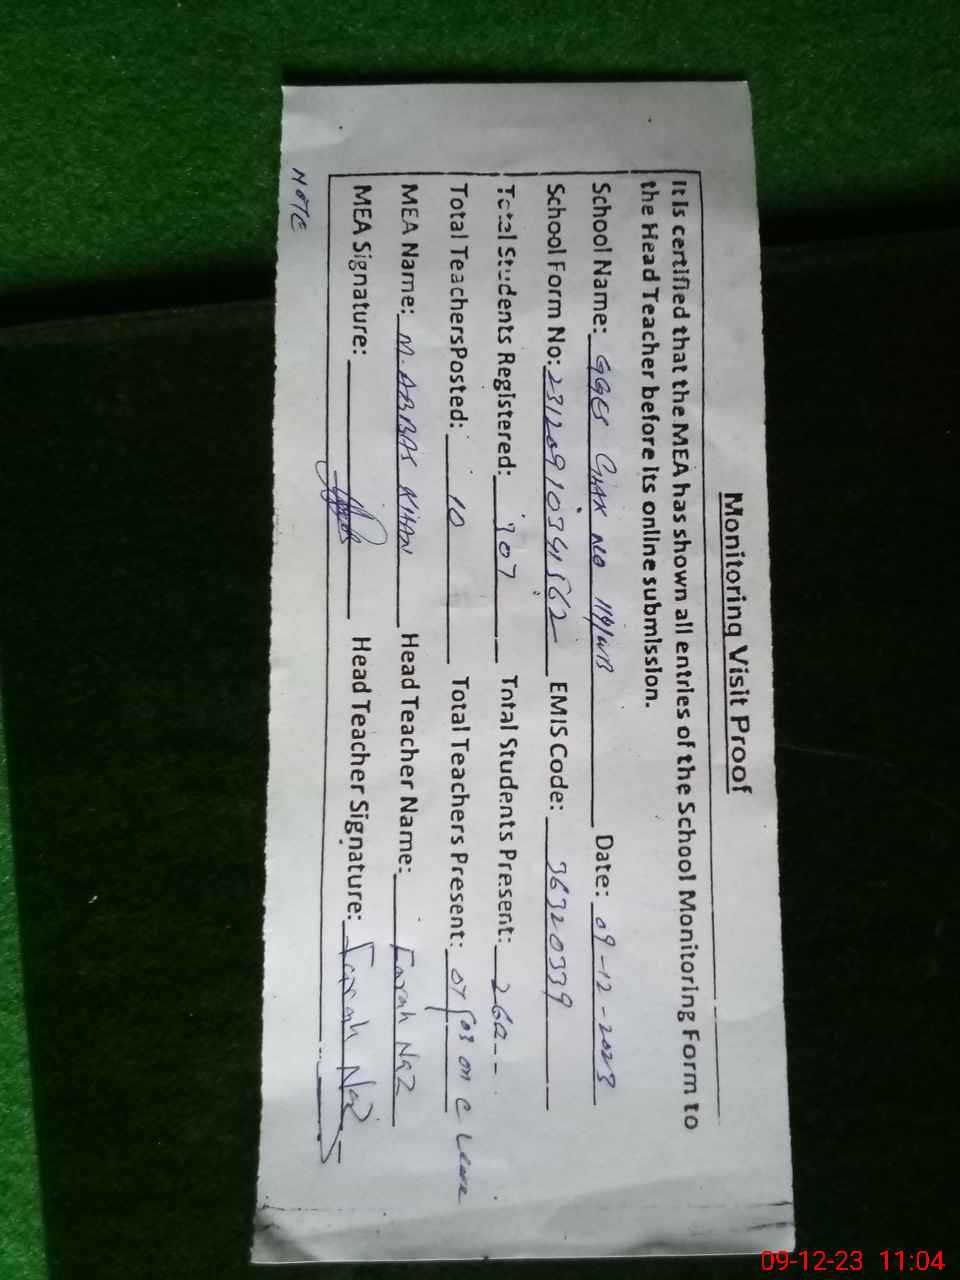 Monitoring Visit Proof
It is certified that the MEA has shown all entries of the School Monitoring Form to
the Head Teacher before its online submission.
School Name: GGES Chak No 119/WB Date: 09-12-2023
School Form No: EMIS Code: 36320339
Total Students Registered: 307 Total Students Present: 260--
Total TeachersPosted: 10 Total Teachers Present: 07 03 on C Leave
MEA Name: M. ABBAS KHAN Head Teacher Name: Farah Naz
MEA Signature: Head Teacher Signature: Farah Naz
NOTE
09-12-23 11:04